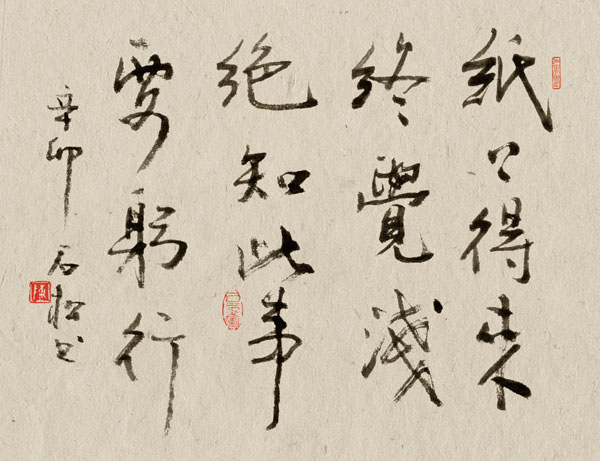 紙上得来
終覺淺
絶知此事
要躬行
辛卯 石松书